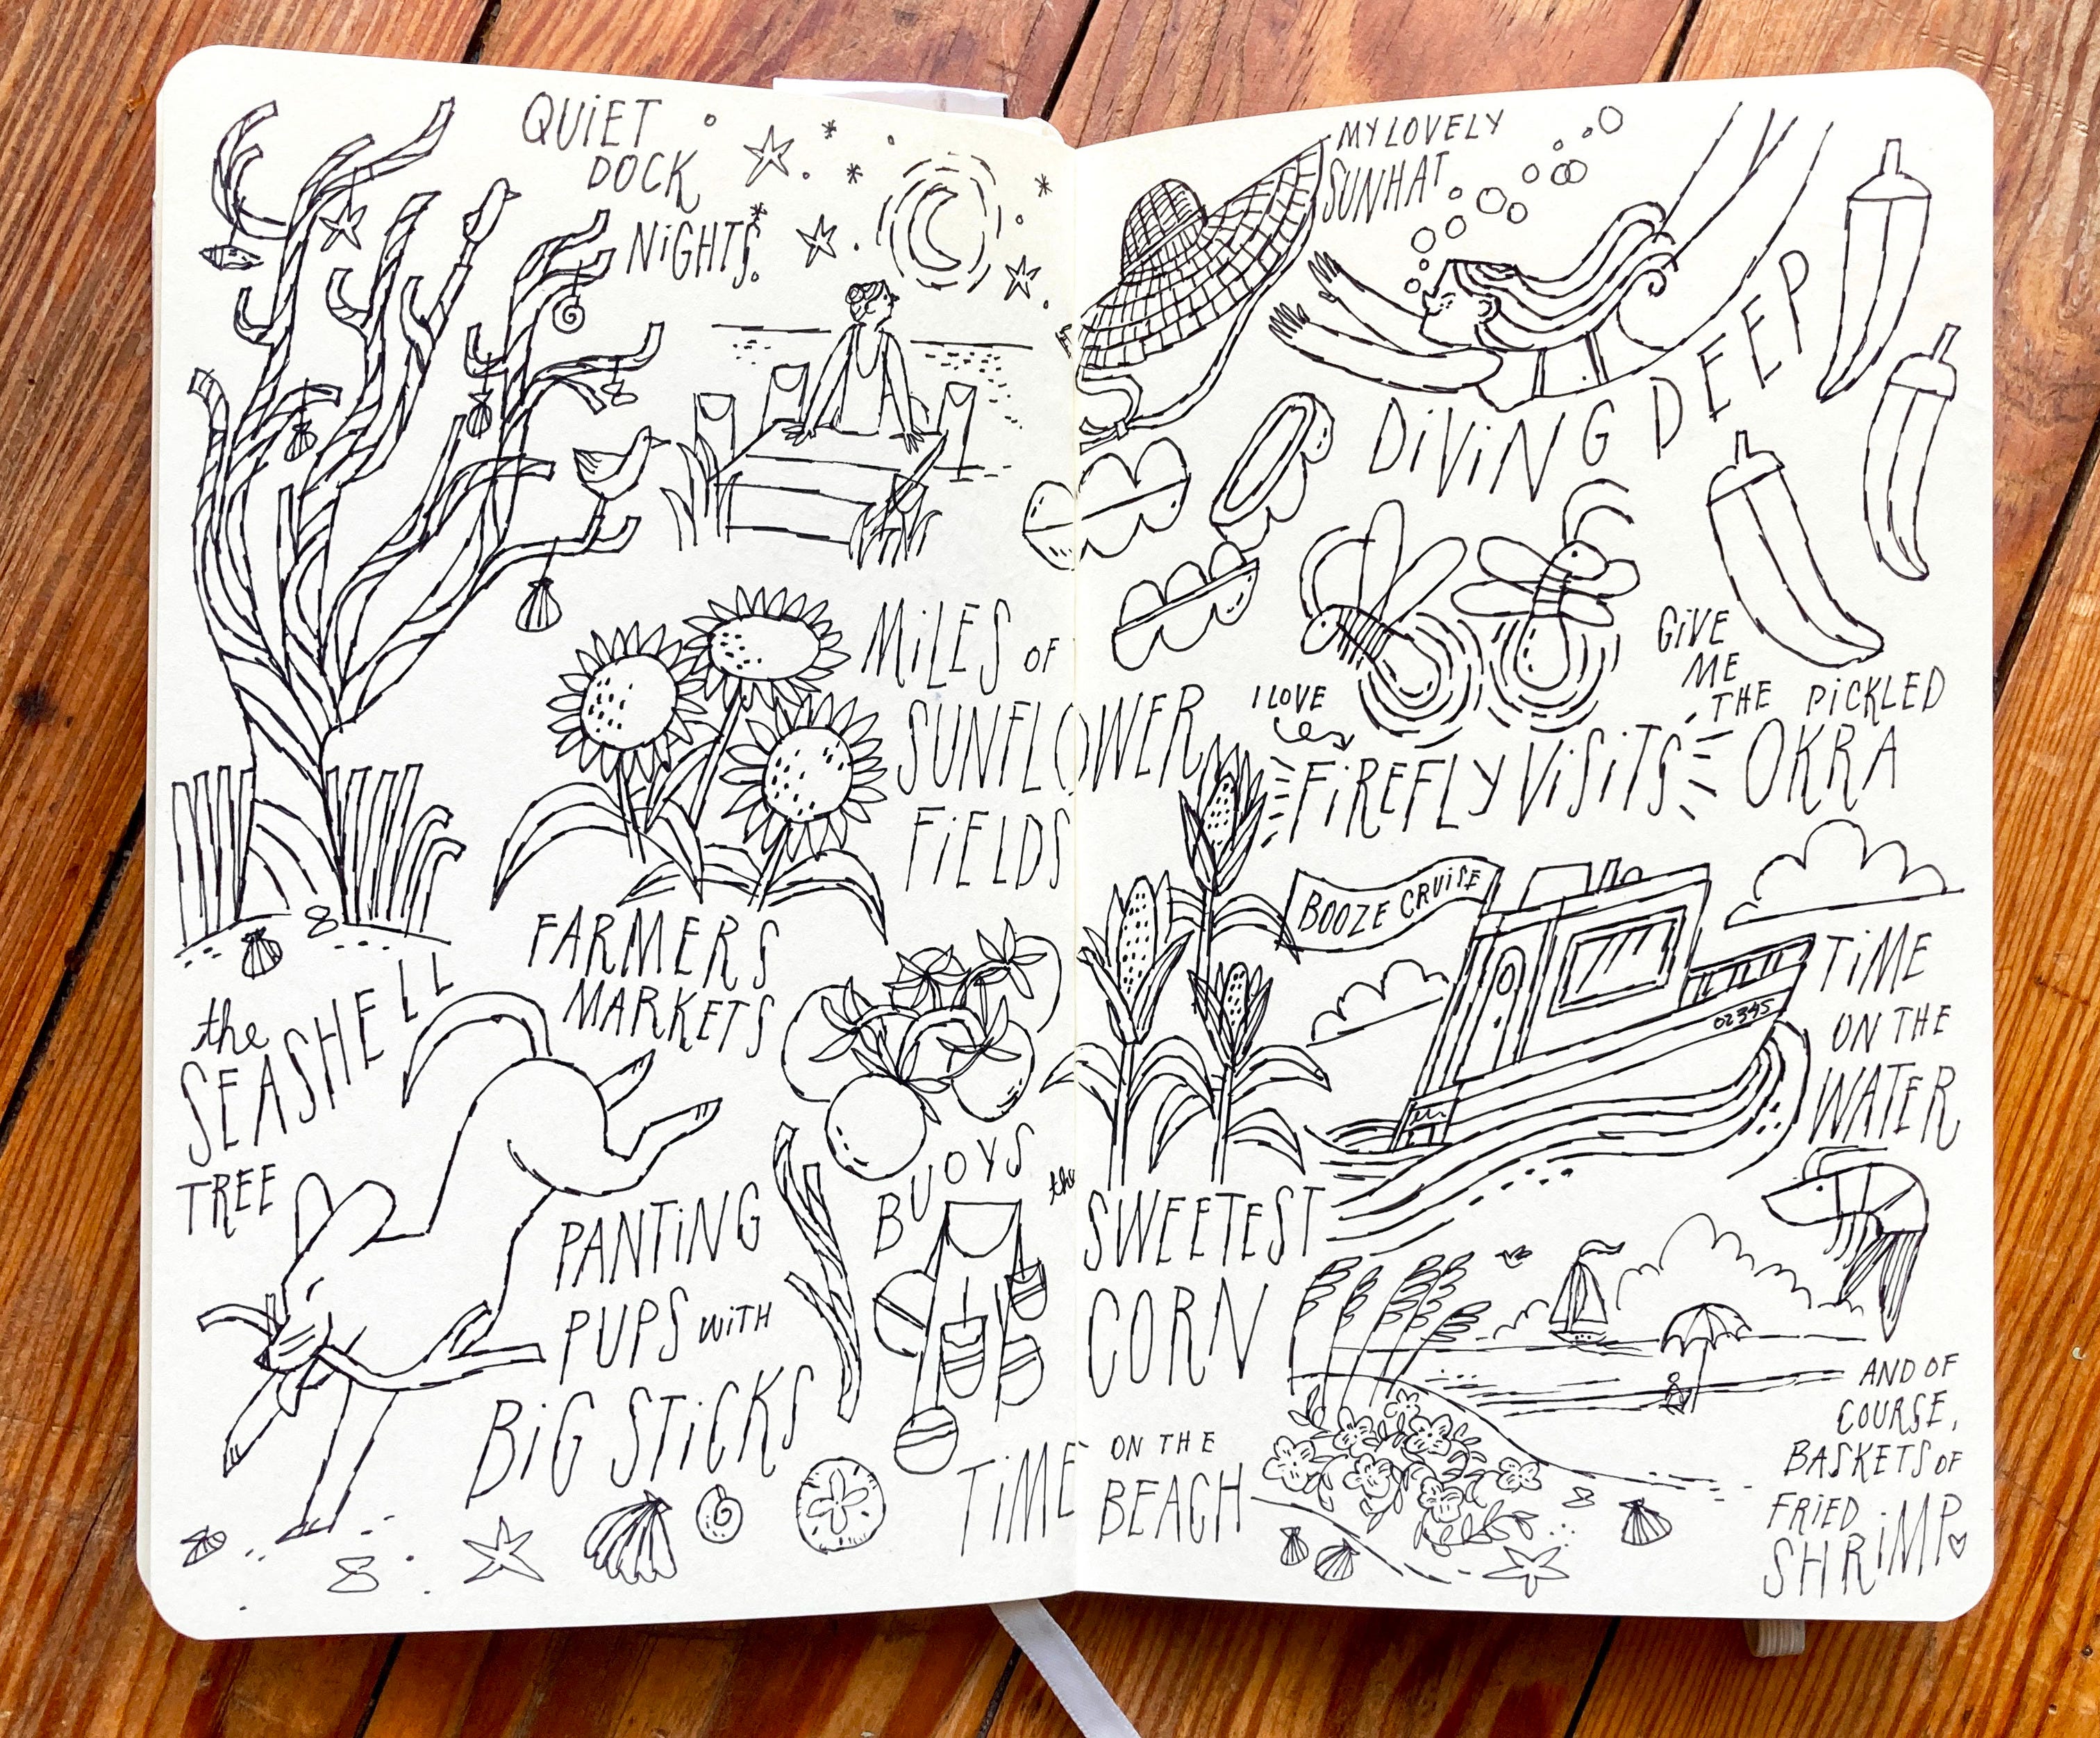 QUiET
DOCK
NiGHTS
MiLES OF
SUNFLOWER
FiELDS
FARMERS
MARKETS
the
SEASHELL
TREE
BUOYS
PANTiNG
PUPS WiTH
BiG STiCKS
MY LOVELY
SUNHAT
DiViNG DEEP
GiVE
ME
THE PiCKLED
OKRA
I LOVE
FiREFLY ViSiTS
BOOZE CRUiSE
02345
TiME
ON THE
WATER
the
SWEETEST
CORN
TiME ON THE
BEACH
AND OF
COURSE,
BASKETS OF
FRiED
SHRiMP